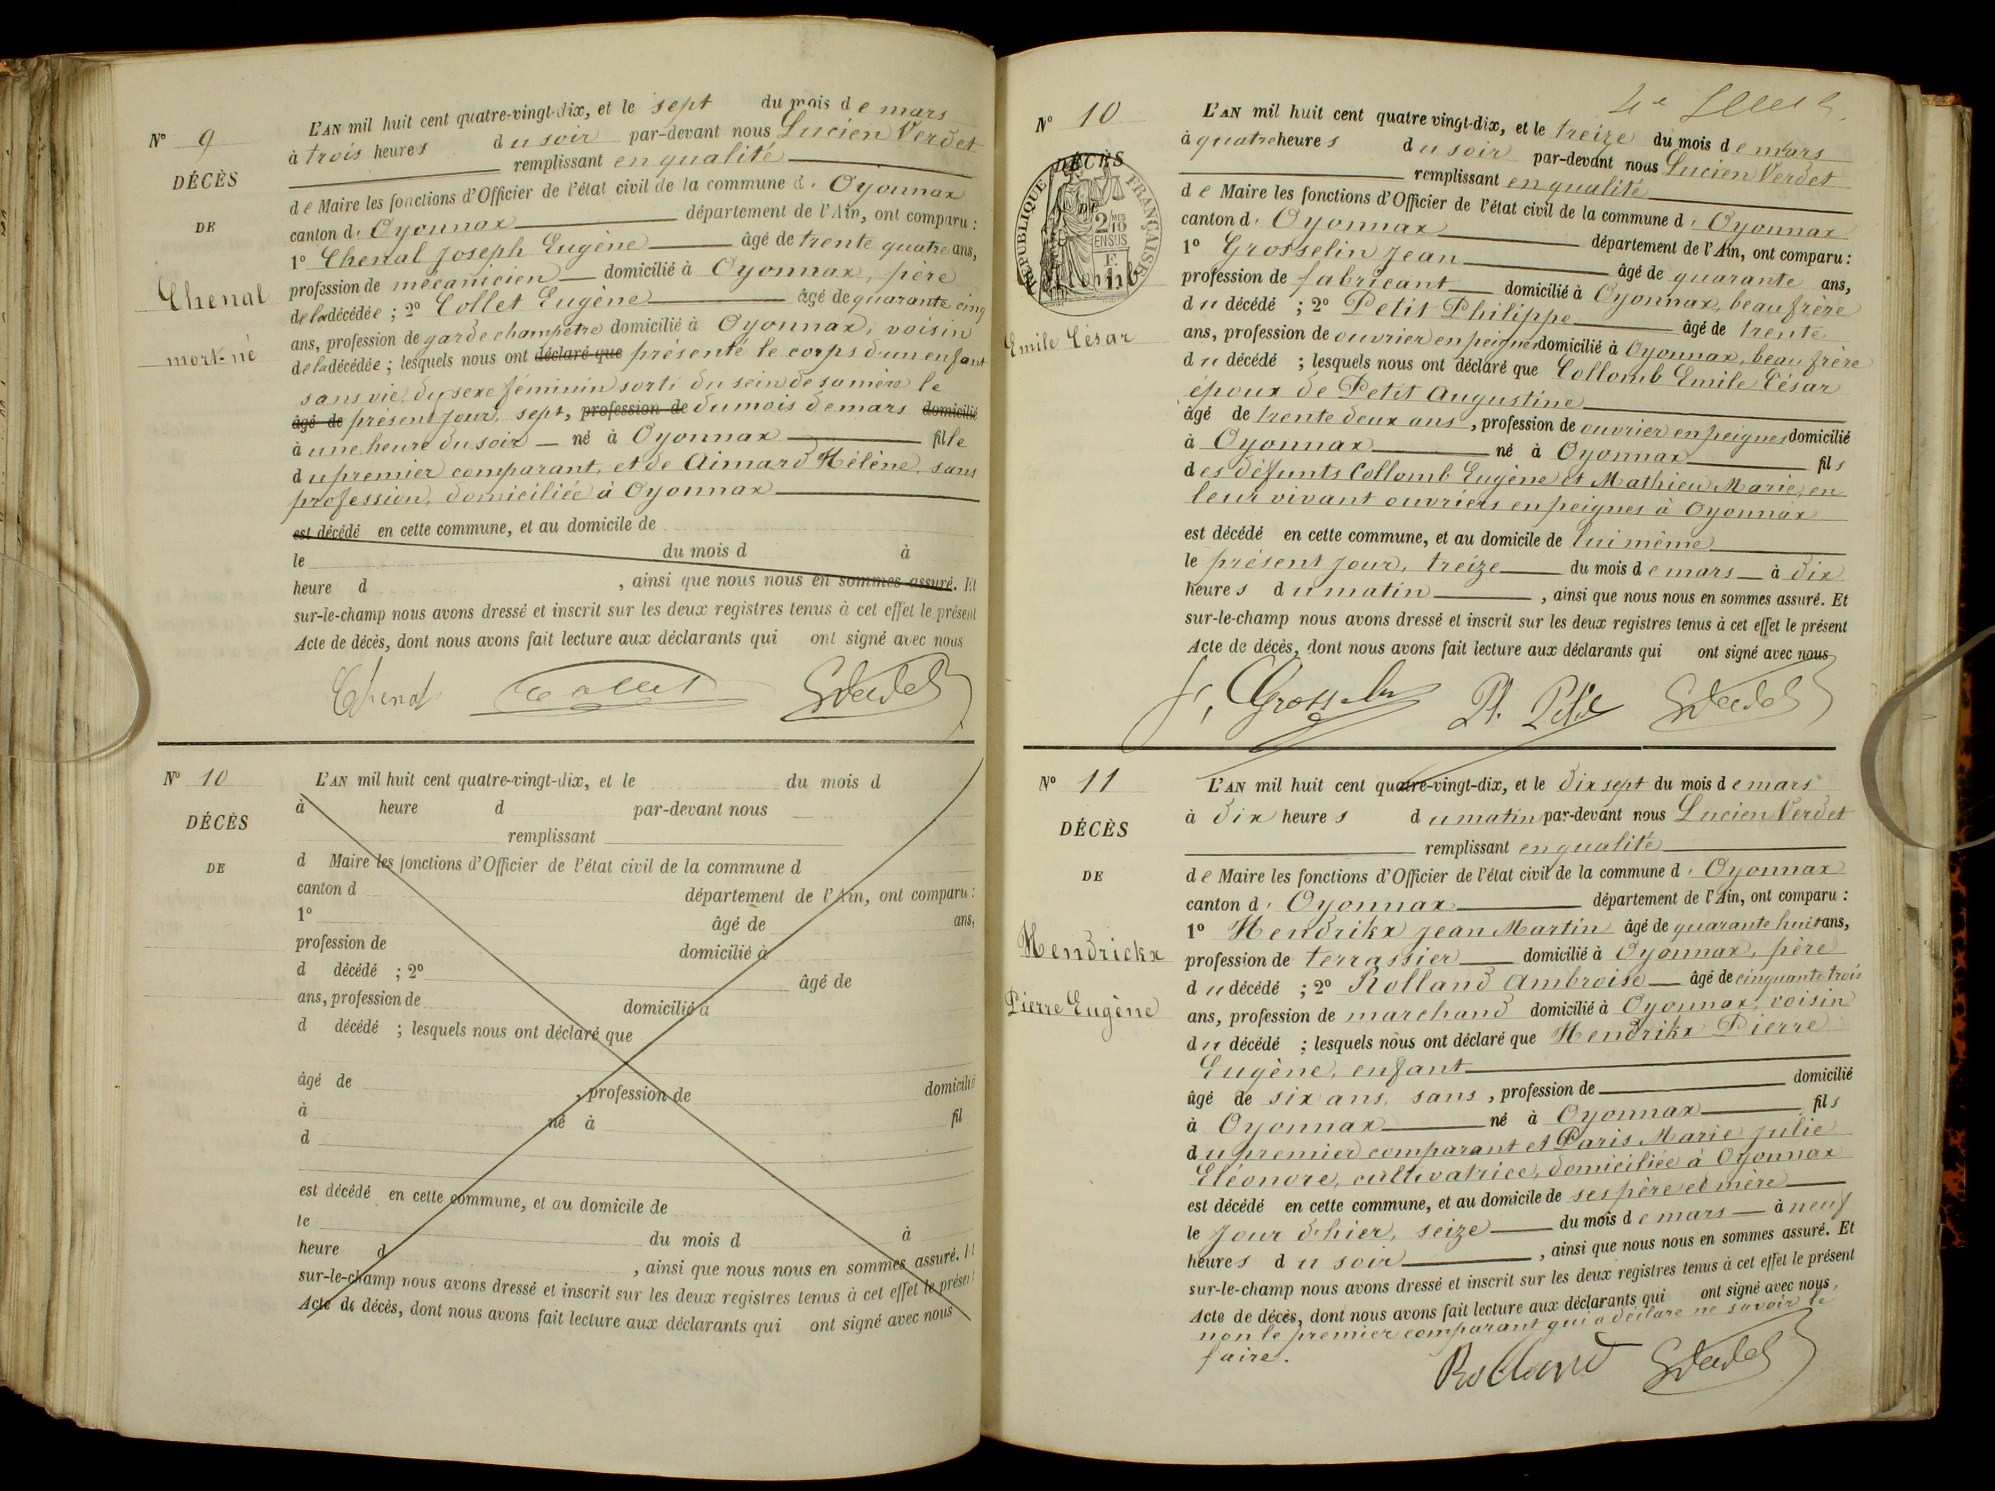 N° 9
DÉCÈS
DE
Chenal
mort-né
L'AN mil huit cent quatre-vingt-dix, et le sept du mois de mars
à trois heures du soir par-devant nous Lucien Verdet
remplissant en qualité
de Maire les fonctions d'Officier de l'état civil de la commune d'Oyonnax
canton d'Oyonnax département de l'Ain, ont comparu :
1° Chenal Joseph Eugène âgé de trente quatre ans,
profession de mécanicien domicilié à Oyonnax, père
de la décédée ; 2° Collet Eugène âgé de quarante cinq
ans, profession de garde champêtre domicilié à Oyonnax, voisin
de la décédée ; lesquels nous ont déclaré que présenté le corps d'un enfant
sans vie, du sexe féminin sorti du sein de sa mère le
âgé de présent jour, sept, profession de du mois de mars domicilié
à une heure du soir né à Oyonnax fille
du premier comparant, et de Aimard Hélène, sans
profession, domiciliée à Oyonnax
est décédé en cette commune, et au domicile de
le du mois d à
heure d , ainsi que nous nous en sommes assuré. Et
sur-le-champ nous avons dressé et inscrit sur les deux registres tenus à cet effet le présent
Acte de décès, dont nous avons fait lecture aux déclarants qui ont signé avec nous
Chenal Collet
N° 10
DÉCÈS
DE
L'AN mil huit cent quatre-vingt-dix, et le du mois d
à heure d par-devant nous
remplissant
d Maire les fonctions d'Officier de l'état civil de la commune d
canton d département de l'Ain, ont comparu :
1° âgé de ans,
profession de domicilié à
d décédé ; 2° âgé de
ans, profession de domicilié à
d décédé ; lesquels nous ont déclaré que
âgé de , profession de domicilié
à né à fil
d
est décédé en cette commune, et au domicile de
le du mois d à
heure d , ainsi que nous nous en sommes assuré. Et
sur-le-champ nous avons dressé et inscrit sur les deux registres tenus à cet effet le présent
Acte de décès, dont nous avons fait lecture aux déclarants qui ont signé avec nous
N° 10
DÉCÈS
DE
RÉPUBLIQUE FRANÇAISE
2/10 EN SUS
Collomb
Emile César
L'AN mil huit cent quatre vingt-dix, et le treize du mois de mars
à quatre heures du soir par-devant nous Lucien Verdet
remplissant en qualité
de Maire les fonctions d'Officier de l'état civil de la commune d'Oyonnax
canton d'Oyonnax département de l'Ain, ont comparu :
1° Grosselin Jean âgé de quarante ans,
profession de fabricant domicilié à Oyonnax, beau frère
du décédé ; 2° Petit Philippe âgé de trente
ans, profession de ouvrier en peignes domicilié à Oyonnax, beau frère
du décédé ; lesquels nous ont déclaré que Collomb Emile César
époux de Petit Augustine
âgé de trente deux ans, profession de ouvrier en peignes domicilié
à Oyonnax né à Oyonnax fils
des défunts Collomb Eugène et Mathieu Marie, en
leur vivant ouvriers en peignes à Oyonnax
est décédé en cette commune, et au domicile de lui même
le présent jour, treize du mois de mars à dix
heures du matin , ainsi que nous nous en sommes assuré. Et
sur-le-champ nous avons dressé et inscrit sur les deux registres tenus à cet effet le présent
Acte de décès, dont nous avons fait lecture aux déclarants qui ont signé avec nous
J. Grosselin Ph. Petit
N° 11
DÉCÈS
DE
Hendrickx
Pierre Eugène
L'AN mil huit cent quatre-vingt-dix, et le dix sept du mois de mars
à dix heures du matin par-devant nous Lucien Verdet
remplissant en qualité
de Maire les fonctions d'Officier de l'état civil de la commune d'Oyonnax
canton d'Oyonnax département de l'Ain, ont comparu :
1° Hendrikx Jean Martin âgé de quarante huit ans,
profession de terrassier domicilié à Oyonnax, père
du décédé ; 2° Rolland Ambroise âgé de cinquante trois
ans, profession de marchand domicilié à Oyonnax, voisin
du décédé ; lesquels nous ont déclaré que Hendrikx Pierre
Eugène, enfant
âgé de six ans, sans, profession de domicilié
à Oyonnax né à Oyonnax fils
du premier comparant et Paris Marie Julie
Eléonore, cultivatrice, domiciliée à Oyonnax
est décédé en cette commune, et au domicile de ses père et mère
le jour d'hier, seize du mois de mars à neuf
heures du soir , ainsi que nous nous en sommes assuré. Et
sur-le-champ nous avons dressé et inscrit sur les deux registres tenus à cet effet le présent
Acte de décès, dont nous avons fait lecture aux déclarants qui ont signé avec nous,
non le premier comparant qui a déclaré ne savoir le
faire.
Rolland